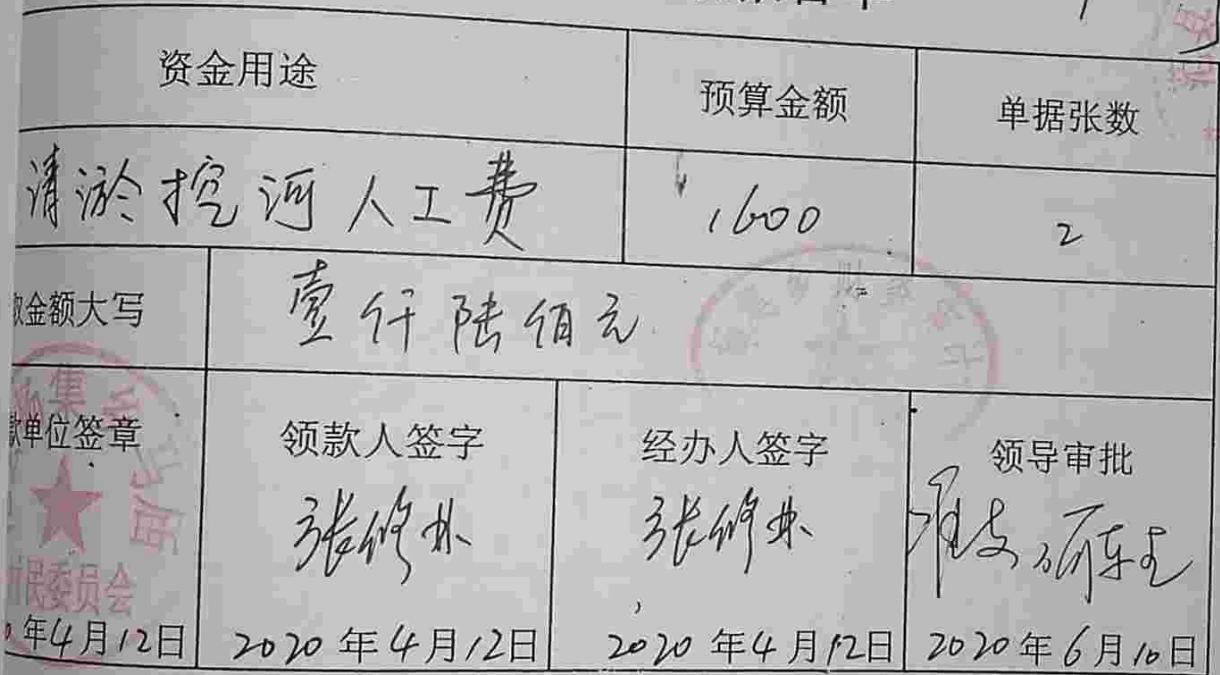 资金用途 预算金额 单据张数
清淤挖河人工费 1600 2
金额大写 壹仟陆佰元
单位签章 领款人签字 经办人签字 领导审批
张修林 张修林 准支
民委员会
年4月12日 2020年4月12日 2020年4月12日 2020年6月10日